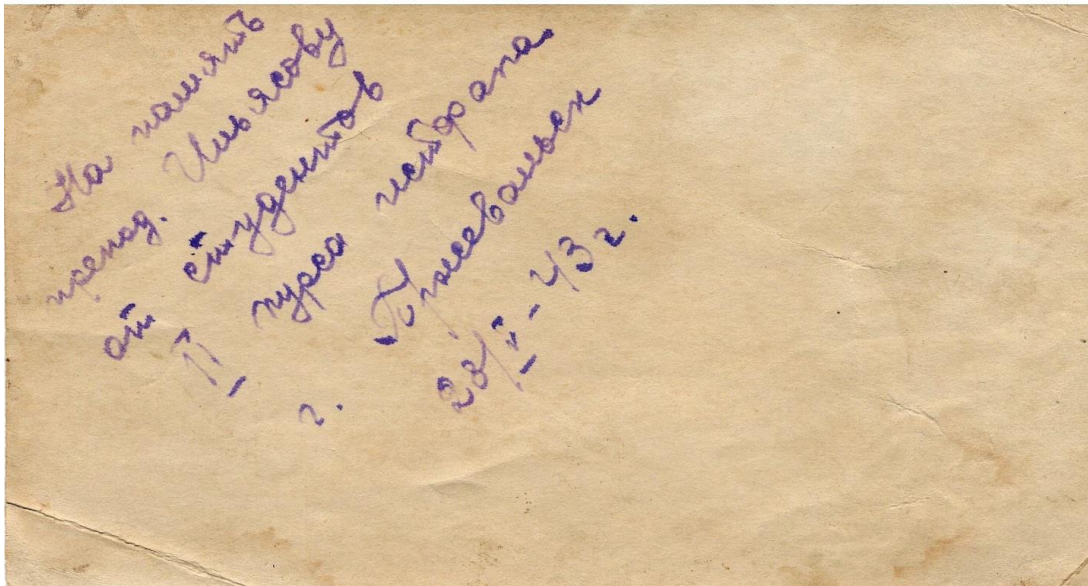 На память
препад. Ильясову
от студентов
II курса истфапа.
г. Пржевальск
28/V-43 г.